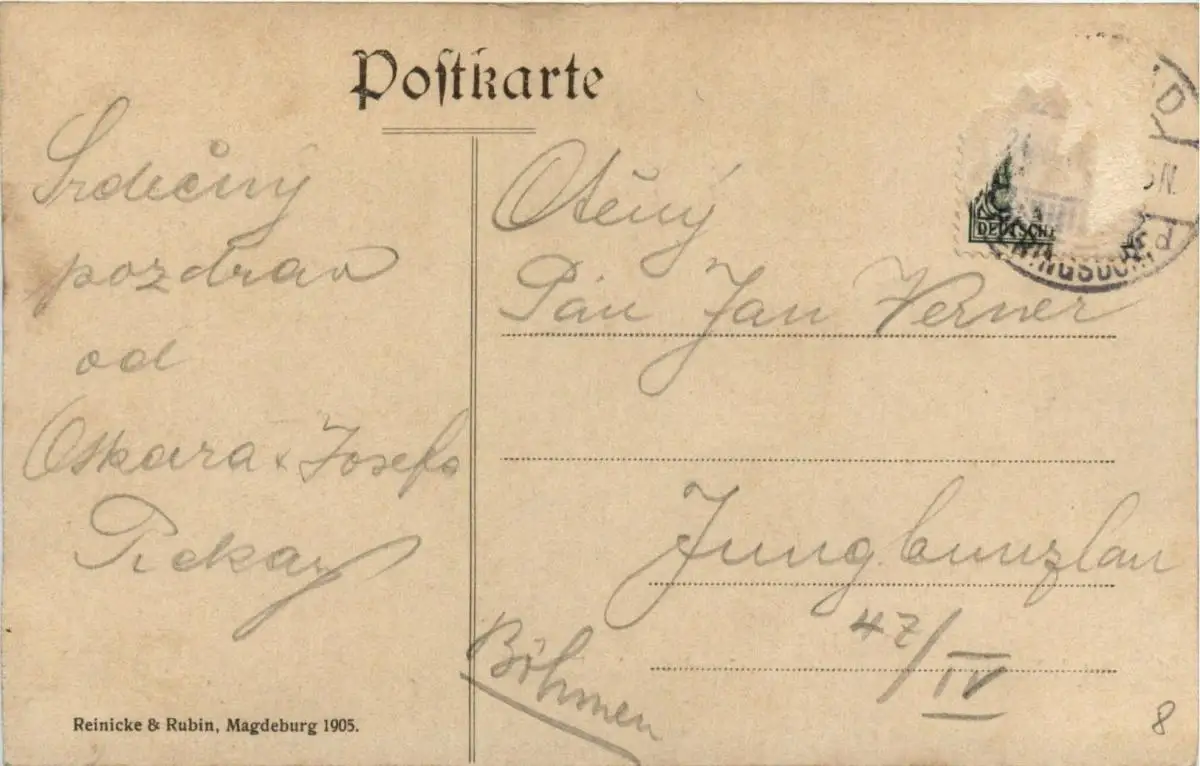 Postkarte
Srdečný
pozdrav
od
Oskara & Josefa
Ctěný
Pán Jan Verner
Jungbunzlau
47/IV
Böhmen
DEUTSCHE
Reinicke & Rubin, Magdeburg 1905.
8